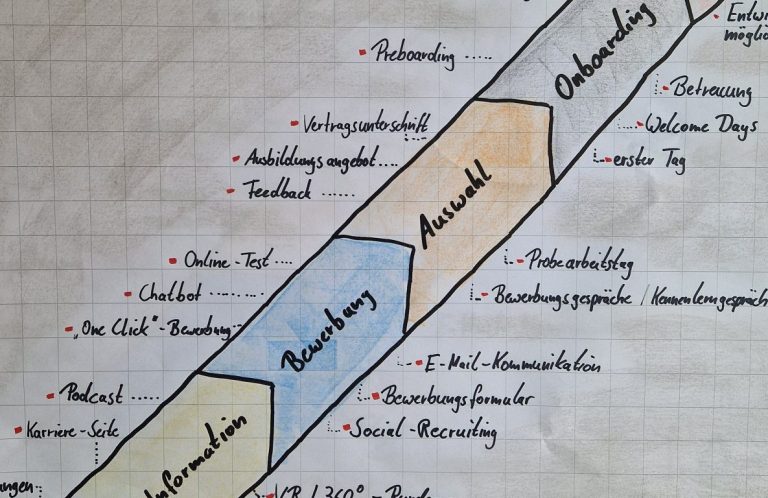 Preboarding .....
Onboarding
Betreuung
Welcome Days
erster Tag
Vertragsunterschrift
Ausbildungsangebot....
Feedback ......
Auswahl
Probearbeitstag
Bewerbungsgespräche / Kennenlerngespräch
Online-Test ....
Chatbot .......
"One Click"-Bewerbung
Bewerbung
E-Mail-Kommunikation
Bewerbungsformular
Social-Recruiting
Podcast .....
Karriere-Seite
Information
VR / 360°